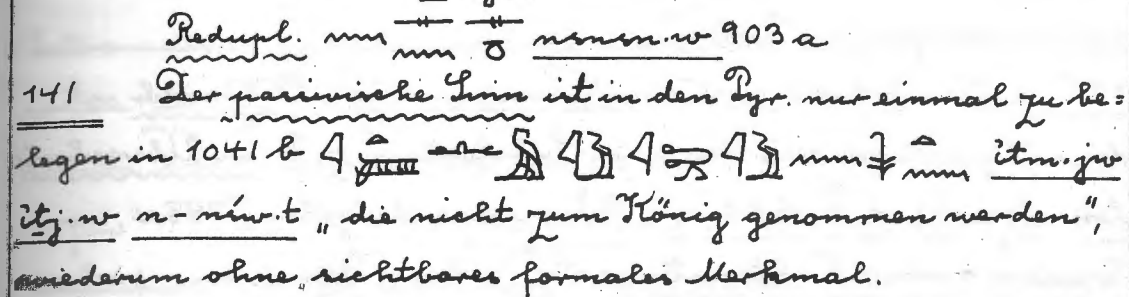 Redupl. nsnsn.w 903 a
141 Der passivische Sinn ist in den Pyr. nur einmal zu be=
legen in 1041 b itm.jw
itj.w n-nśw.t „die nicht zum König genommen werden",
wiederum ohne sichtbares formales Merkmal.